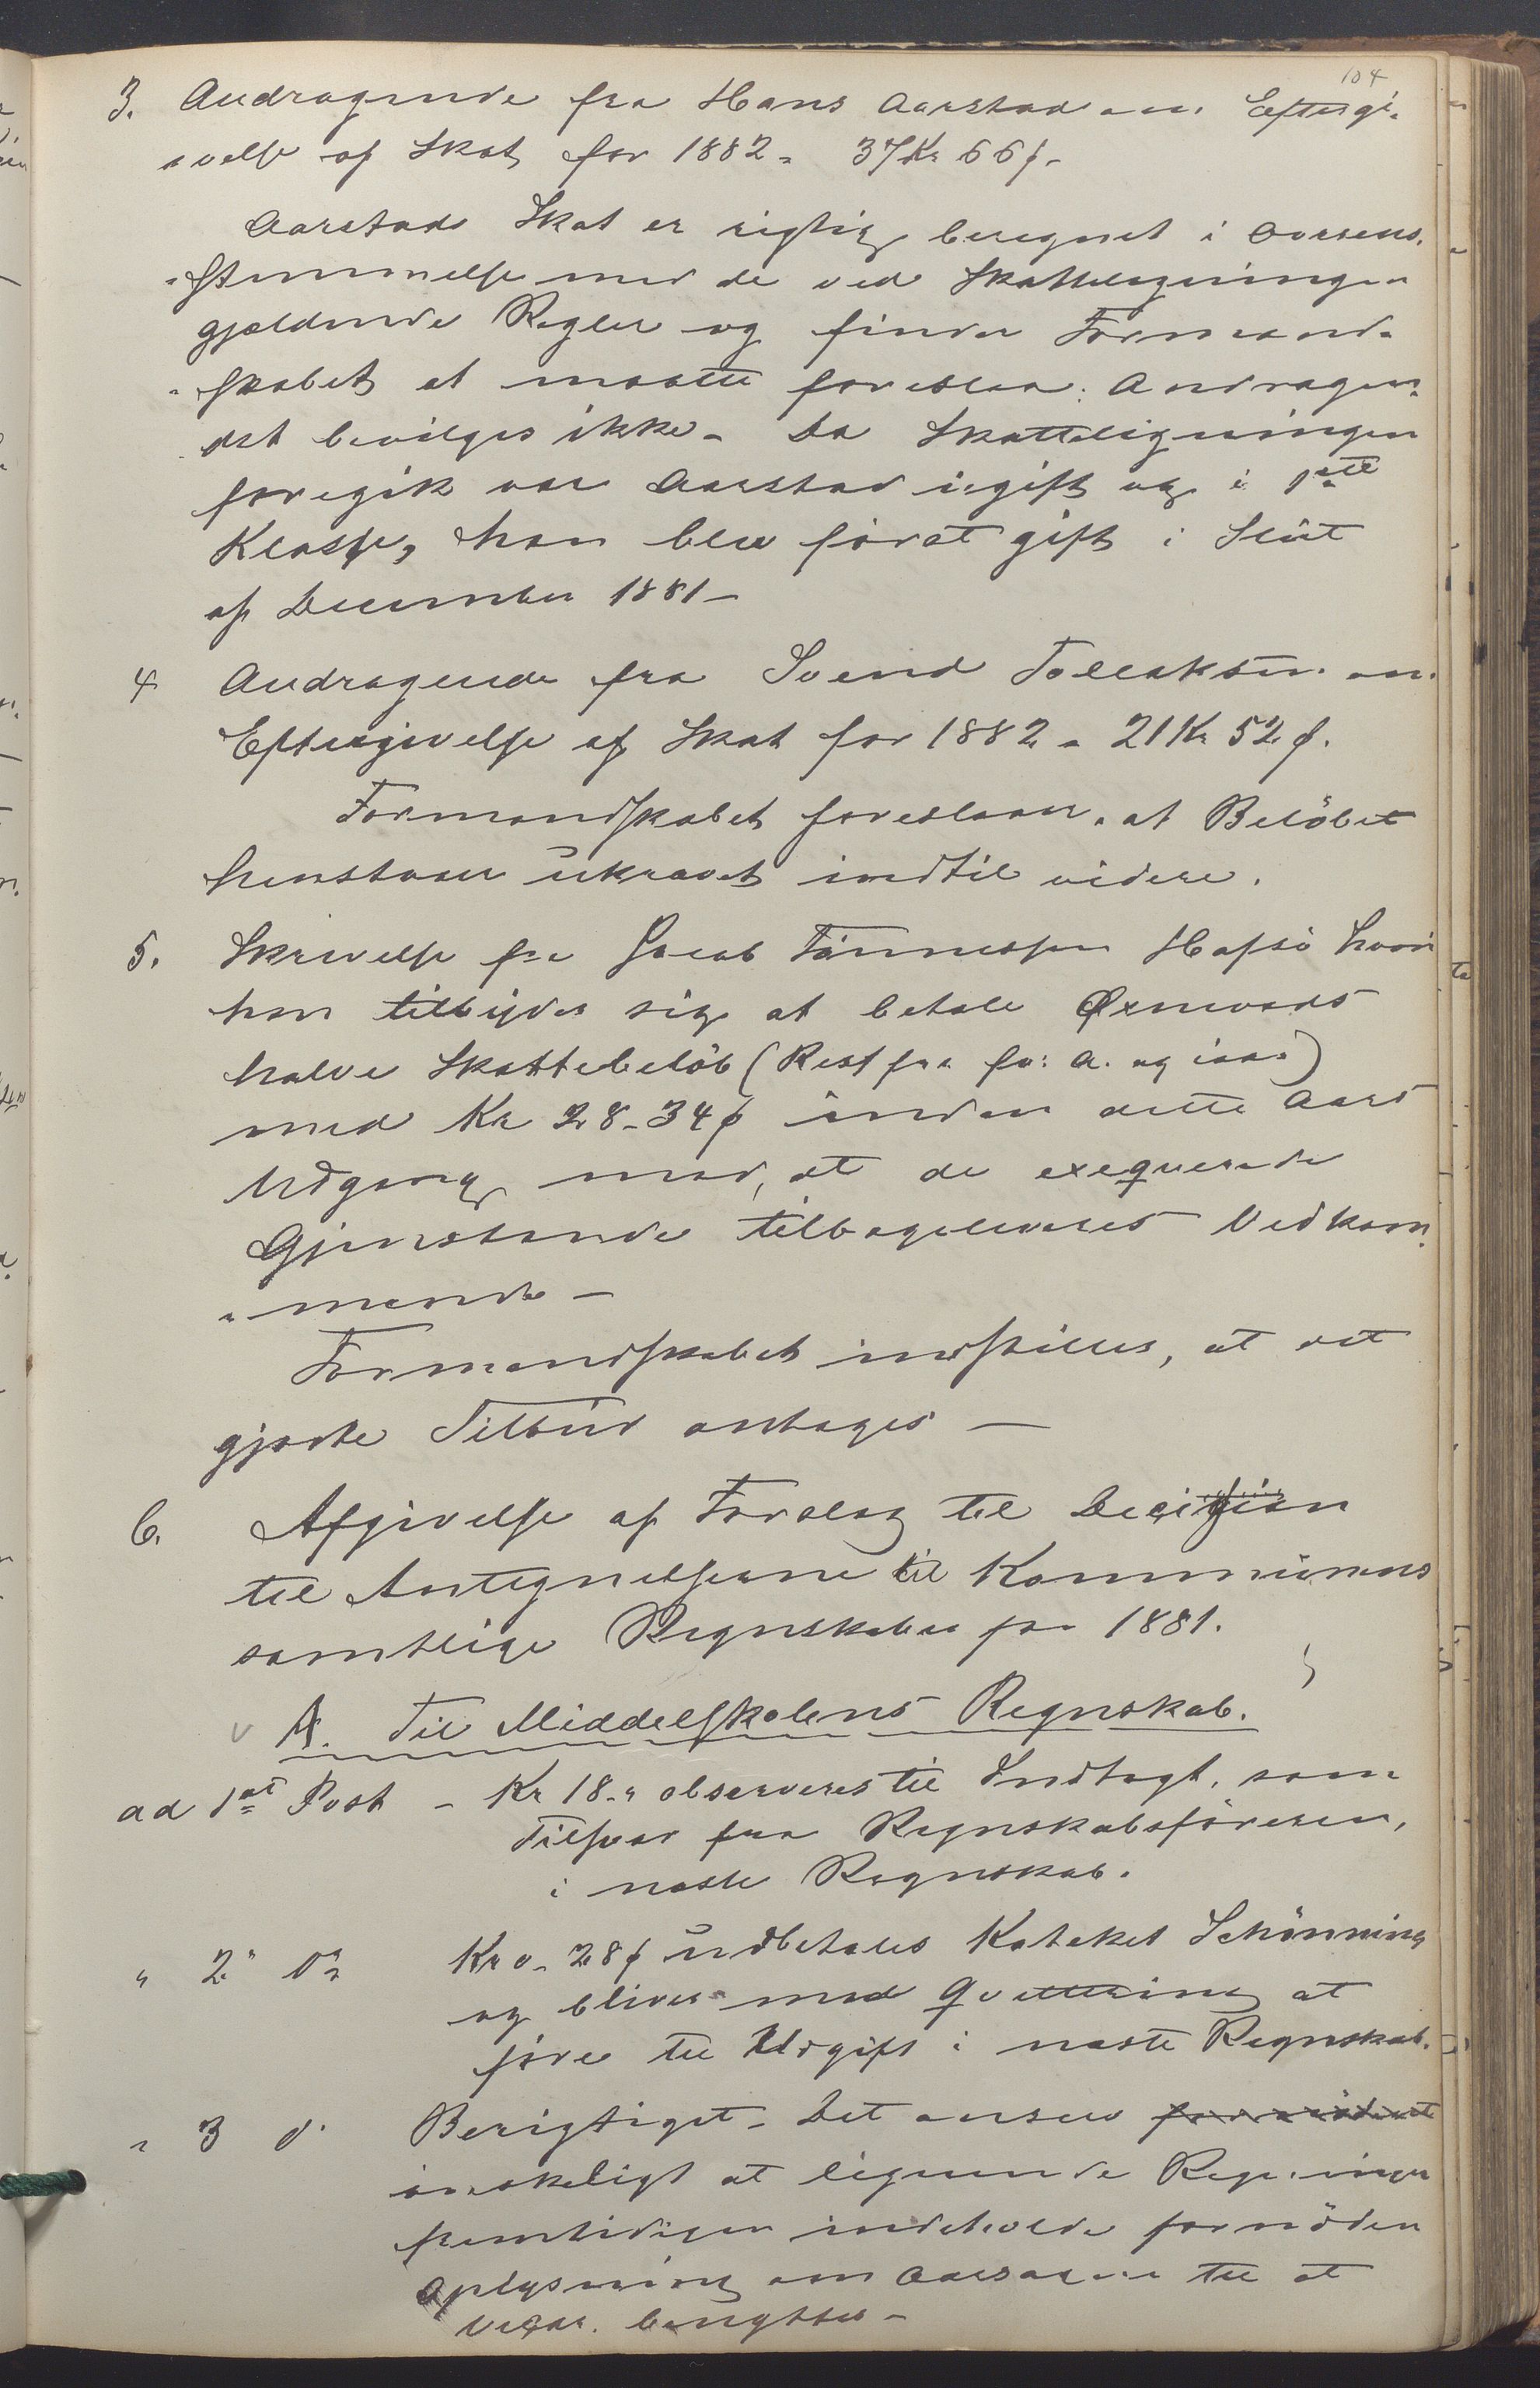 104
3. Andragende fra Hans Aarstad om Eftergi-
velse af Skat for 1882 - 37 Kr 66 ø -
Aarstads Skat er rigtig beregnet i Overens-
stemmelse med de ved Skatteligningen
gjældende Regler og finder Formand-
skabet at maatte foreslaa: Andragen-
det bevilges ikke - Da Skatteligningen
foregik var Aarstad ugift og i 1ste
Klasse, han blev først gift i Slut
af December 1881 -
4 Andragende fra Svend Tollaksen om
Eftergivelse af Skat for 1882 - 21 Kr 52 ø.
Formandskabet foreslaar, at Belöbet
henstaar ukrævet indtil videre.
5. Skrivelse fra Jacob Tönnessen Hafsö hvori
han tilbyder sig at betale Øxnevads
halve Skattebelöb (Rest fra fr: A. og iaar)
med Kr 28-34 ø inden dette Aars
Udgang mod, at de exequerede
Gjenstande tilbageleveres Vedkom-
mende -
Formandskabet indstiller, at det
gjorte Tilbud antages -
6. Afgivelse af Forslag til Decision
til Antegnelserne til Kommunens
samtlige Regnskaber for 1881.
A. Til Middelskolens Regnskab.
ad 1ste Post - Kr 18 - " observeres til Indtægt, som
Tilsvar fra Regnskabsföreren,
i næste Regnskab.
" 2" Do Kr 0-28 ø udbetales Kateket Schönning
og bliver med Qvittering at
före til Udgift i næste Regnskab.
" 3 d. Berigtiget - Det ansees fornödent
önskeligt at lignende Regninger
fremtidigen indeholde fornöden
Oplysning om Aarsagen til at
benyttes -